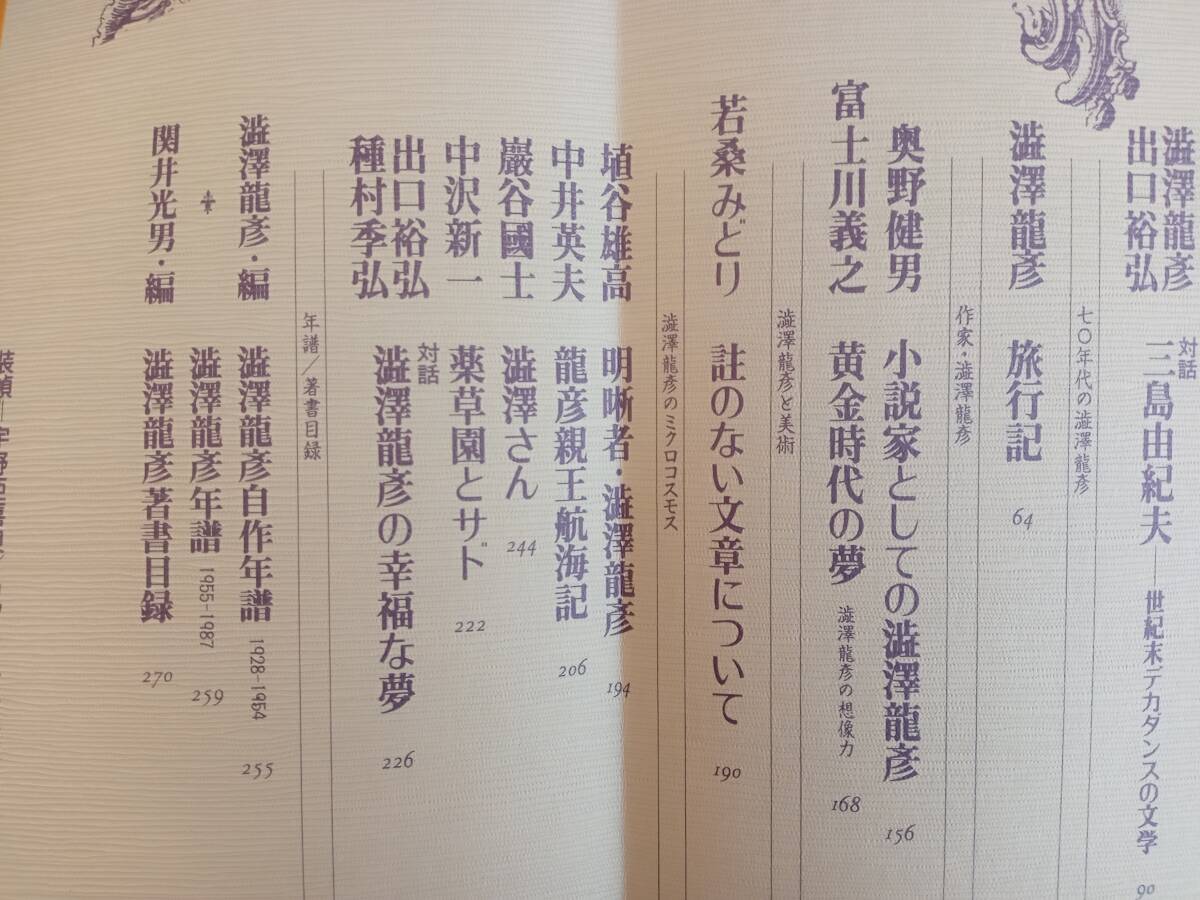 澁澤龍彥
出口裕弘
対話
三島由紀夫——世紀末デカダンスの文学 90
七〇年代の澁澤龍彥
澁澤龍彥 旅行記 64
作家・澁澤龍彥
奥野健男 小説家としての澁澤龍彥 156
富士川義之 黄金時代の夢 澁澤龍彥の想像力 168
澁澤龍彥と美術
若桑みどり 註のない文章について 190
澁澤龍彥のミクロコスモス
埴谷雄高 明晰者・澁澤龍彥 194
中井英夫 龍彦親王航海記 206
巖谷國士 澁澤さん 244
中沢新一 薬草園とサド 222
出口裕弘
種村季弘
対話
澁澤龍彥の幸福な夢 226
年譜/著書目録
澁澤龍彥・編 澁澤龍彥自作年譜 1928-1954 255
澁澤龍彥年譜 1955-1987 259
関井光男・編 澁澤龍彥著書目録 270